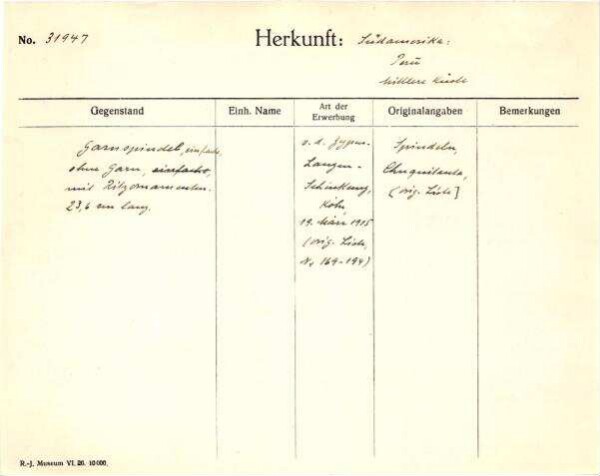 No. 31947
Herkunft: Südamerika:
Perú
Mittlere Küste
Gegenstand
Einh. Name
Art der Erwerbung
Originalangaben
Bemerkungen
Garnspindel, einfache,
ohne Garn, einfache,
mit Ritzornamenten.
23,6 cm lang.
v. d. Zypen-
Langen-
Schenkung,
Köln,
19. März 1915
(orig. Liste,
Nr 164-194)
Spindeln,
(orig. Liste]
R.-J. Museum VI. 26. 10000.